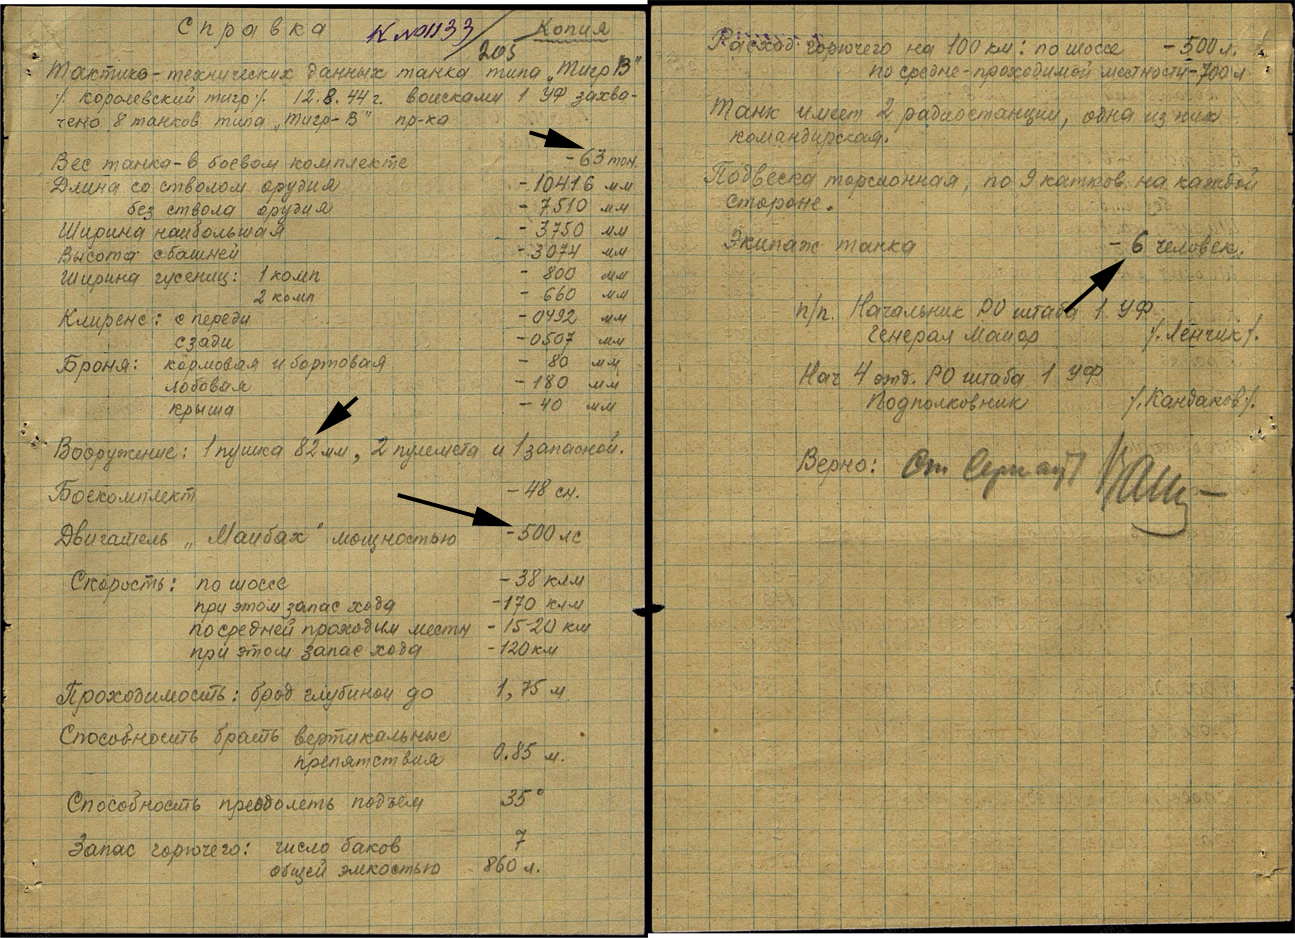 Справка К №1133/205 Копия
Тактико-технических данных танка типа „Тигр В"
/. королевский тигр /. 12.8.44 г. войсками 1 УФ захва-
чено 8 танков типа „Тигр-В" пр-ка
Вес танка-в боевом комплекте -63 тон.
Длина со стволом орудия -10416 мм
без ствола орудия -7510 мм
Ширина наибольшая -3750 мм
Высота с башней -3074 мм
Ширина гусениц: 1 комп - 800 мм
2 комп - 660 мм
Клиренс: с переди -0492 мм
сзади -0507 мм
Броня: кормовая и бортовая - 80 мм
лобовая -180 мм
крыша -40 мм
Вооружение: 1 пушка 82мм, 2 пулемета и 1 запасной.
Боекомплект -48 сн.
Двигатель „Майбах" мощностью -500 лс
Скорость: по шоссе -38 клм
при этом запас хода -170 клм
по средней проходим местн -15-20 км
при этом запас хода -120км
Проходимость: брод глубиной до 1,75 м
Способность брать вертикальные
препятствия 0.85 м.
Способность преодолеть подъем 35°
Запас горючего: число баков 7
общей эмкостью 860 л.
Расход горючего на 100 км: по шоссе -500 л.
по средне-проходимой местности-700 л
Танк имеет 2 радиостанции, одна из них
командирская.
Подвеска торсионная, по 9 катков на каждой
стороне.
Экипаж танка - 6 человек.
п/п. Начальник РО штаба 1 УФ
Генерал Майор /. Ленчик /.
Нач 4 отд. РО штаба 1 УФ
Подполковник /. Кандаков /.
Верно: Ст Сержант